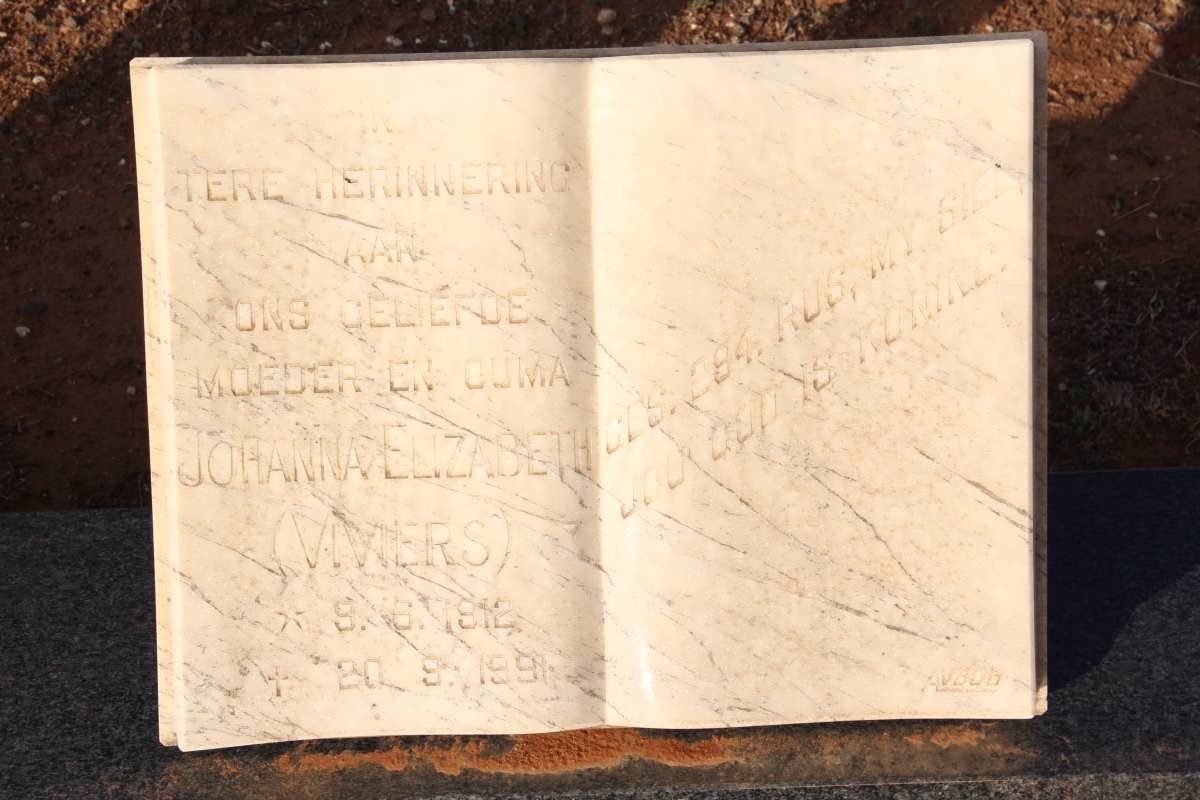 IN
TERE HERINNERING
AAN
ONS GELIEFDE
MOEDER EN OUMA
JOHANNA ELIZABETH
(VIVIERS)
* 9. 6. 1912
+ 20. 9. 1991
GES. 284. RUS, MY SIEL,
JOU GOD IS KONING.
AVBOB